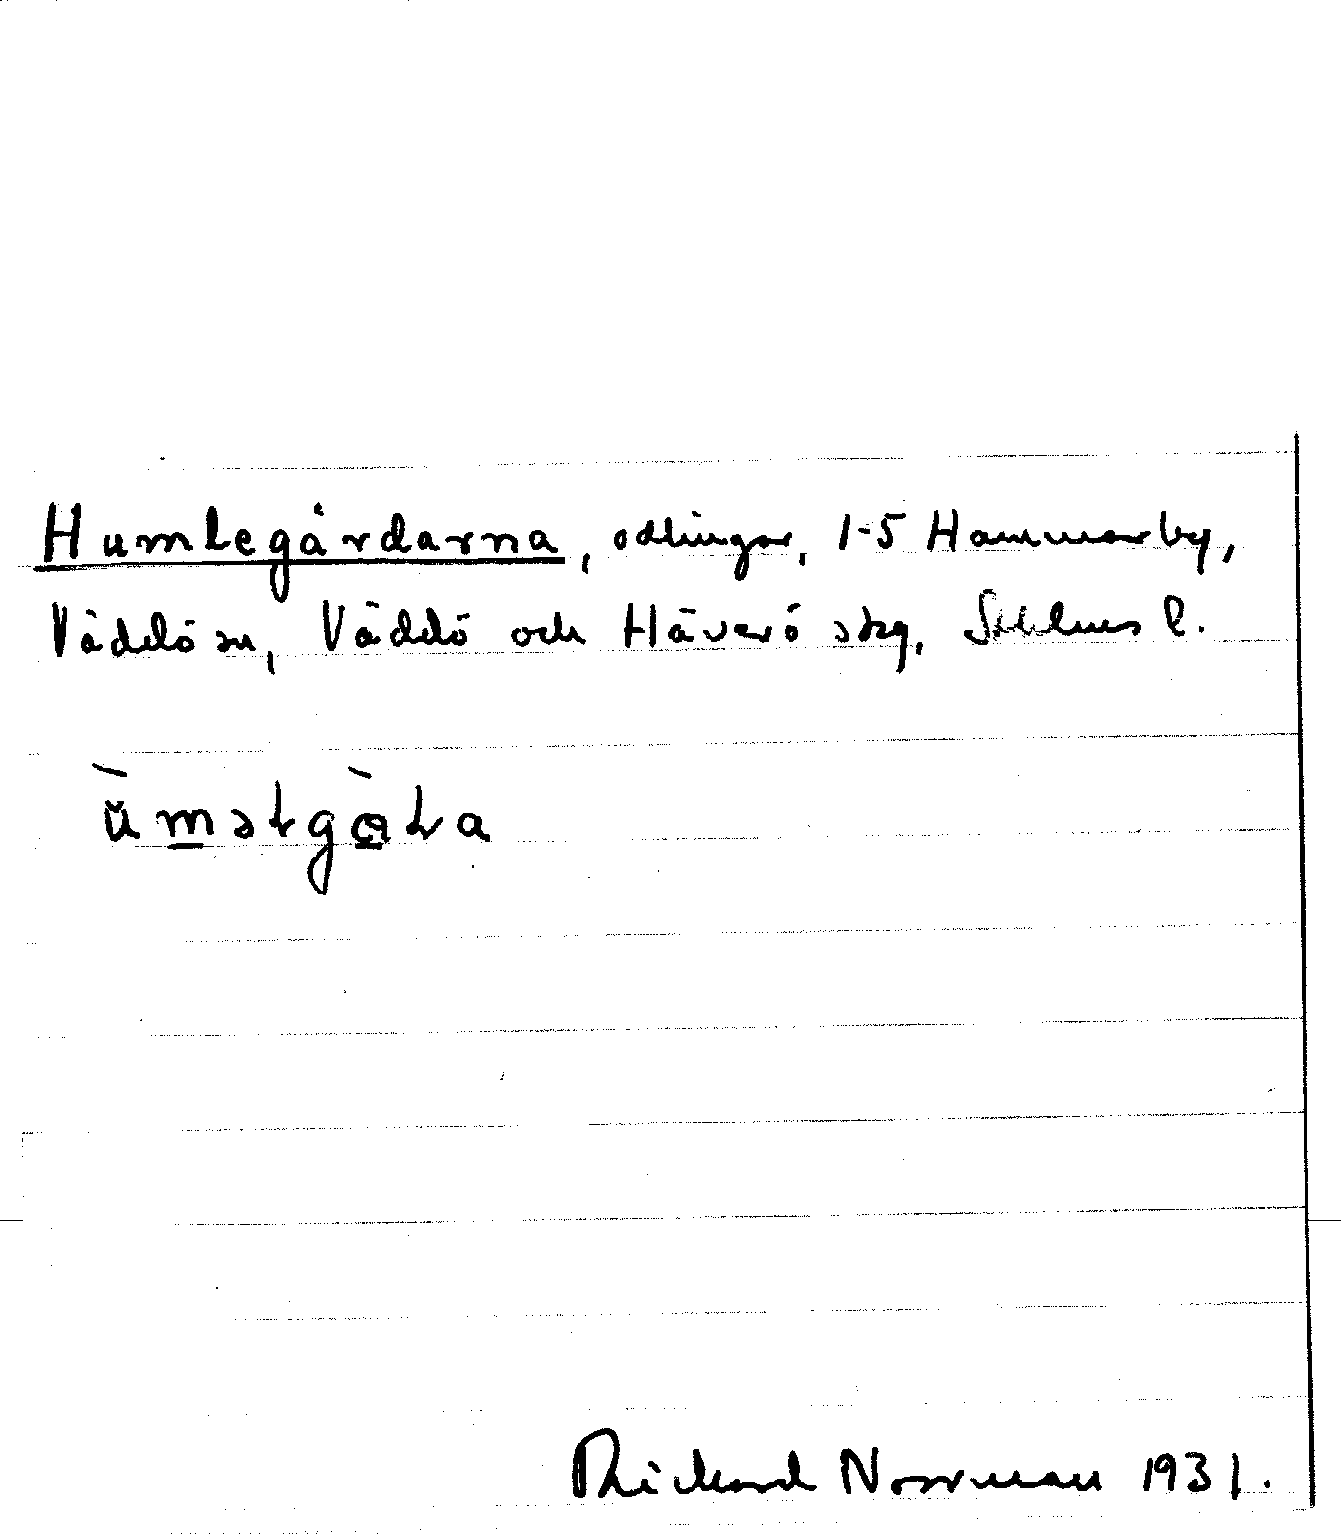 Humlegårdarna, odlingar, 1-5 Hammarby,
Väddö sn, Väddö och Häverö skg, Sthlms l.
Rickard Norrman 1931.